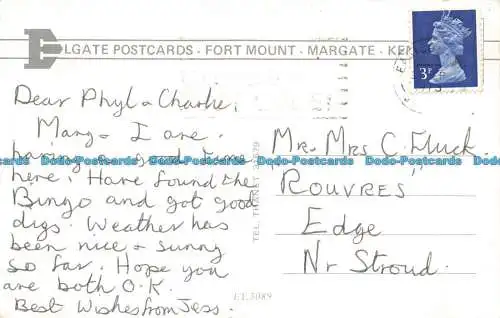 ELGATE POSTCARDS · FORT MOUNT · MARGATE · KEN
3P
Dear Phyl & Charlie,
Mary & I are
having a good time
here. Have found the
Bingo and got good
digs. Weather has
been nice & sunny
so far. Hope you
are both O.K.
Best Wishes from Jess.
TEL. THANET
ET.5089
Mr. Mrs C. Fluck.
"ROUVRES"
Edge
Nr Stroud.
Dodo-Postcards Dodo-Postcards Dodo-Postcards Dodo-Postcards Dodo-Postcards